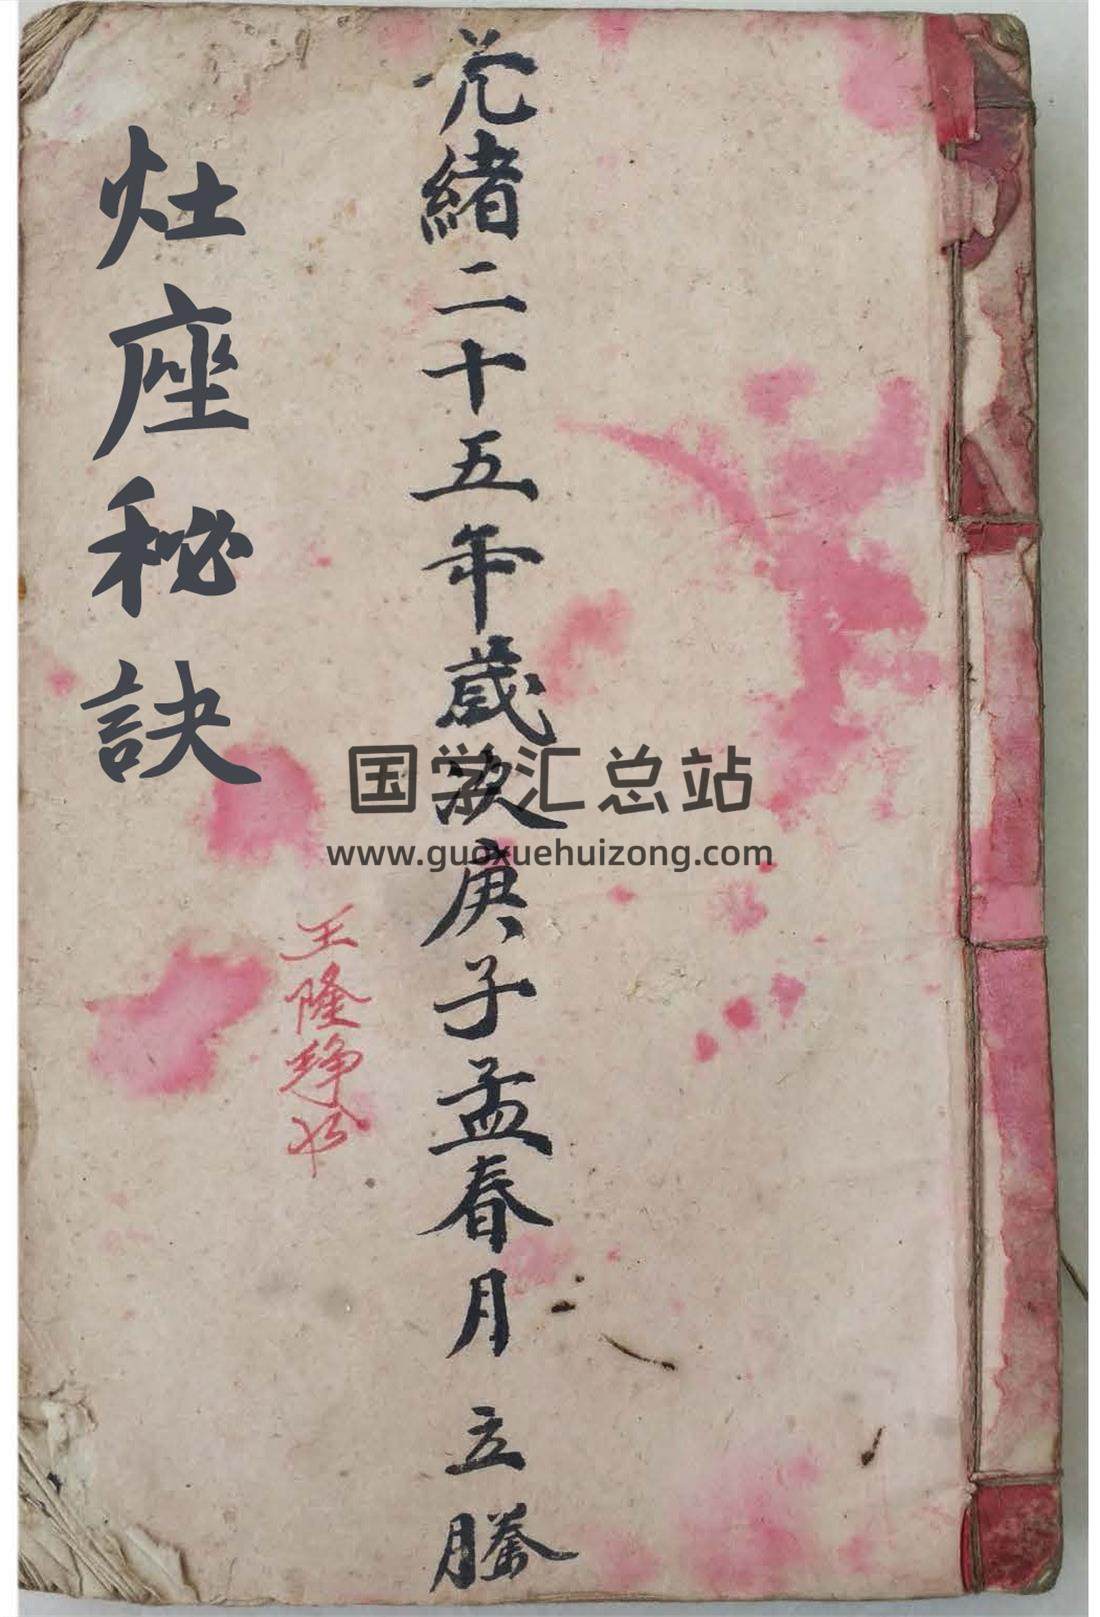 光緒二十五年歲次庚子孟春月 立
王隆
灶座秘訣
国学汇总站
www.guoxuehuizong.com